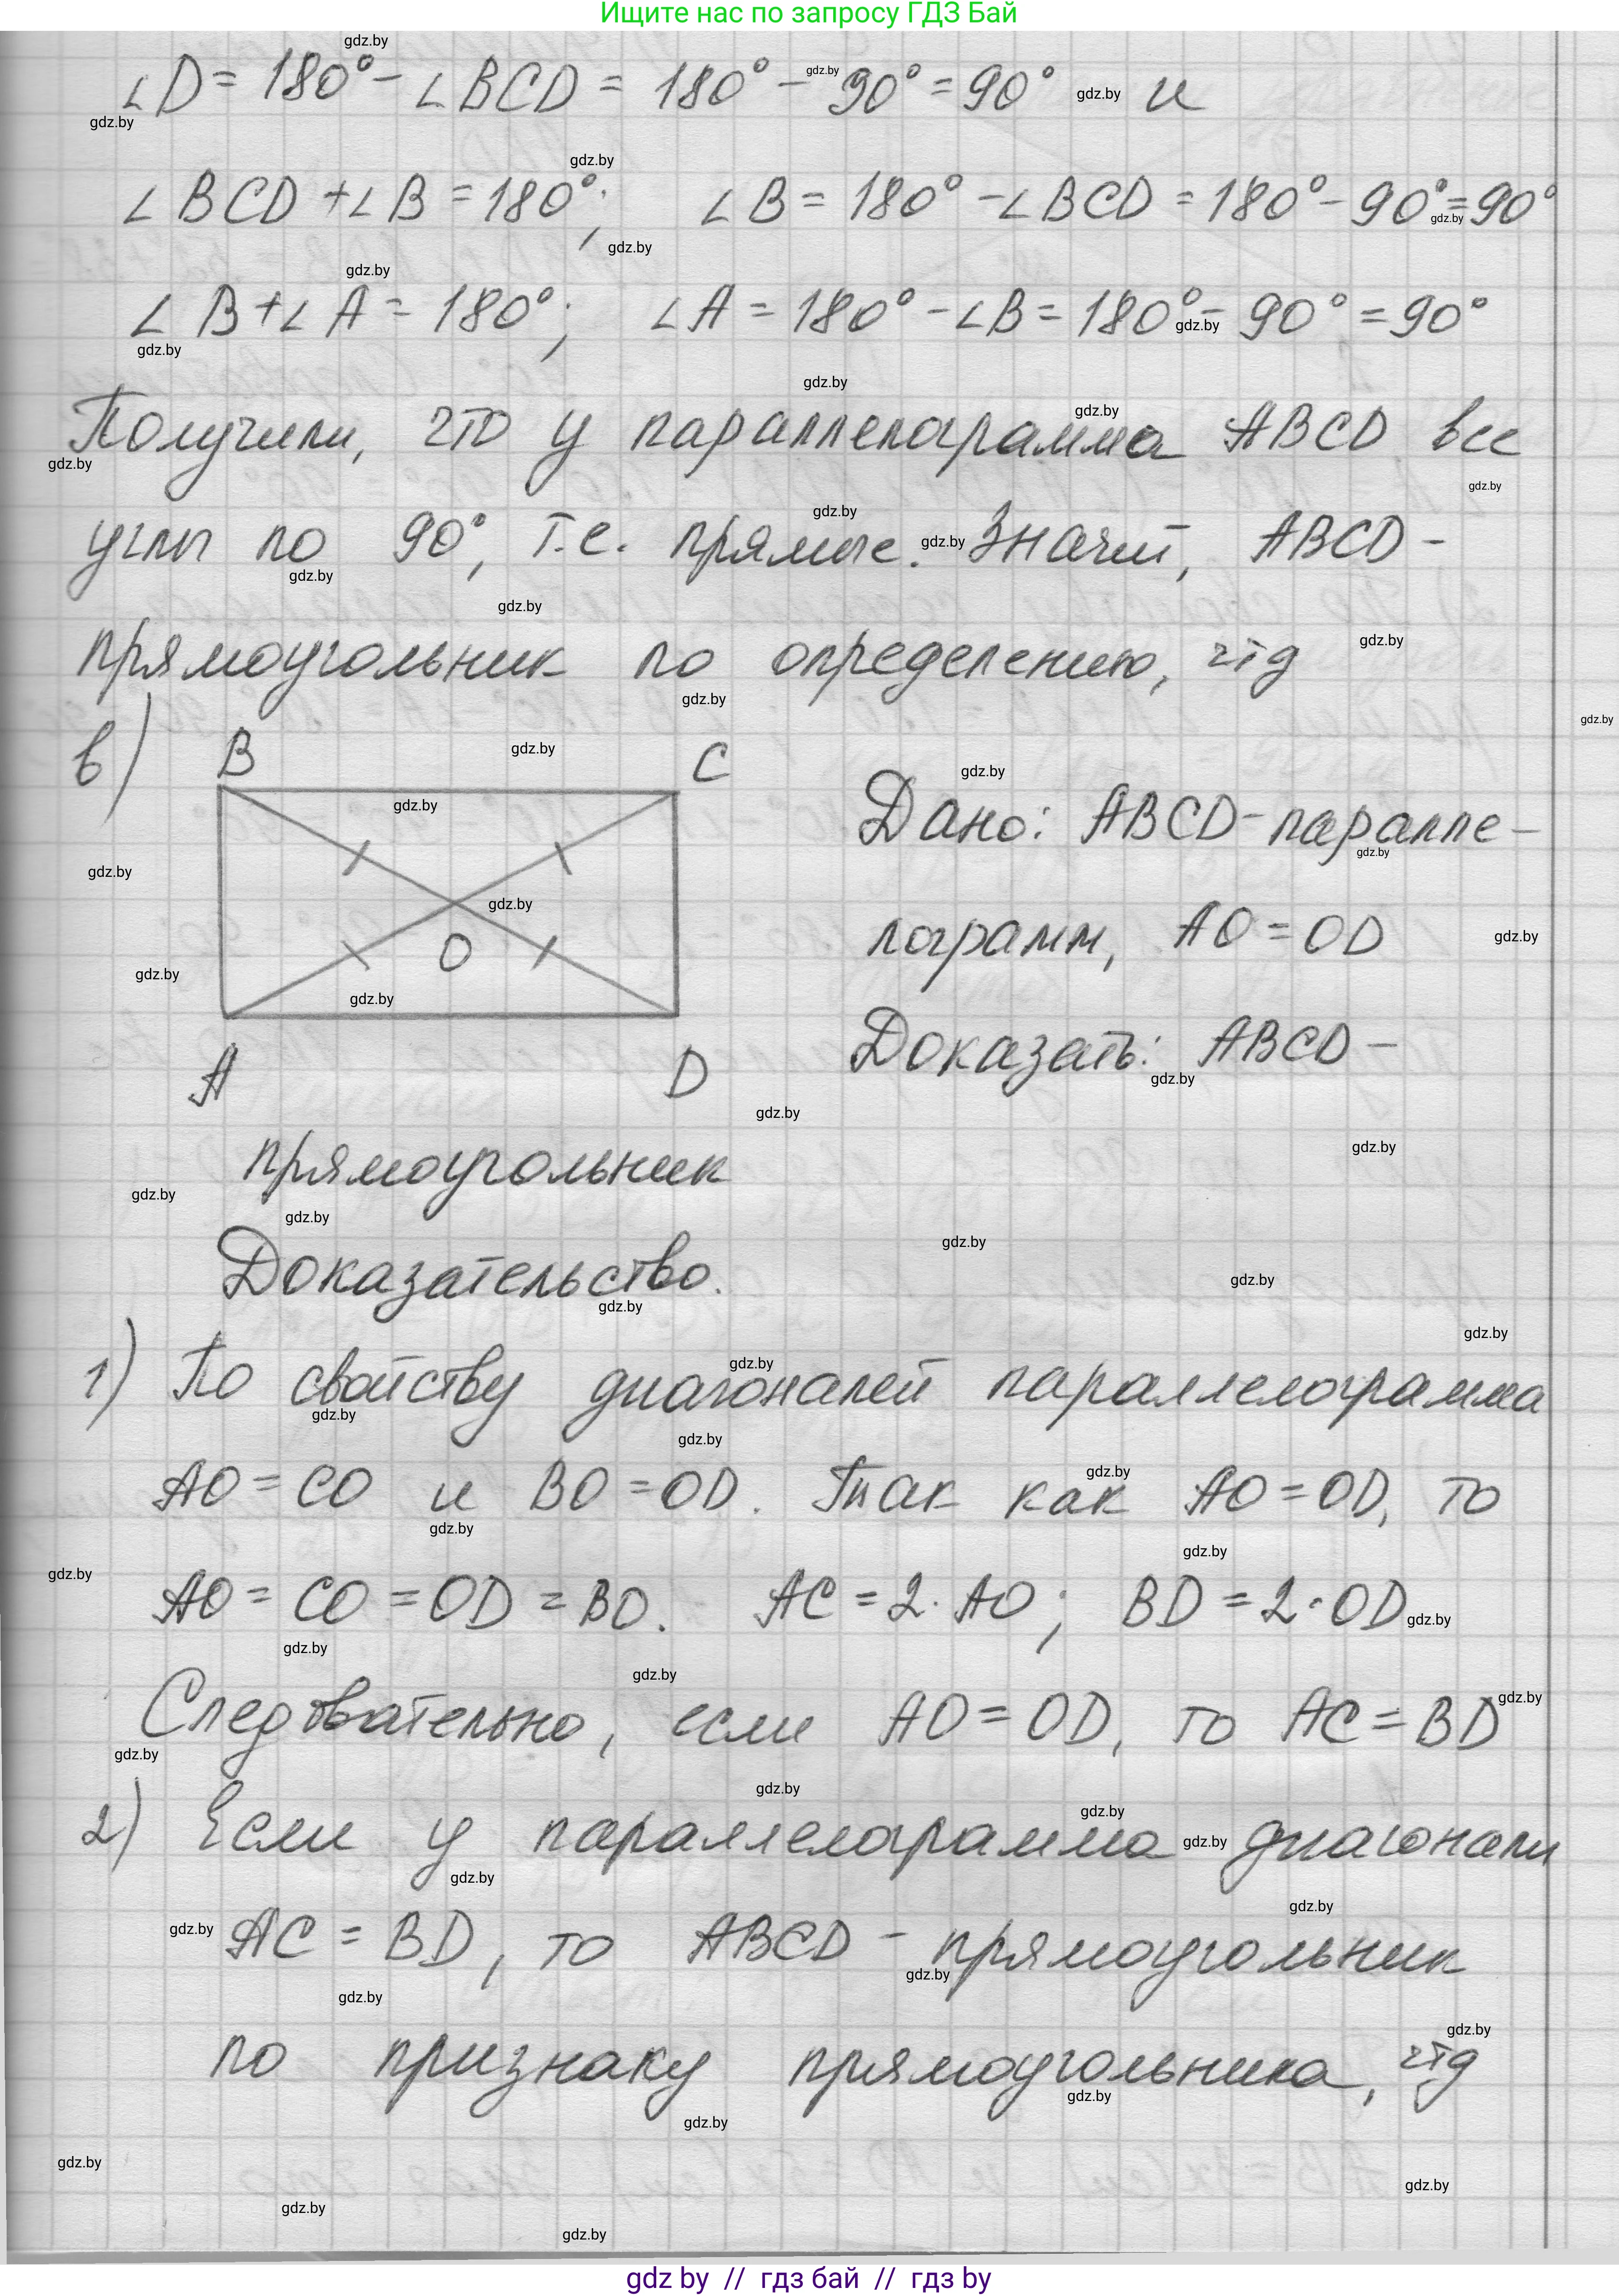 Ищите нас по запросу ГДЗ Бай
∠D = 180° - ∠BCD = 180° - 90° = 90° и
∠BCD + ∠B = 180°; ∠B = 180° - ∠BCD = 180° - 90° = 90°
∠B + ∠A = 180°; ∠A = 180° - ∠B = 180° - 90° = 90°
Получили, что у параллелограмма ABCD все
углы по 90°, т.е. прямые. Значит, ABCD -
прямоугольник по определению, чтд
в)
B C
O
A D
Дано: ABCD - паралле-
лограмм, AO = OD
Доказать: ABCD -
прямоугольник
Доказательство.
1) По свойству диагоналей параллелограмма
AO = CO и BO = OD. Так как AO = OD, то
AO = CO = OD = BO. AC = 2·AO; BD = 2·OD
Следовательно, если AO = OD, то AC = BD
2) Если у параллелограмма диагонали
AC = BD, то ABCD - прямоугольник
по признаку прямоугольника, чтд
gdz by // гдз бай // гдз by